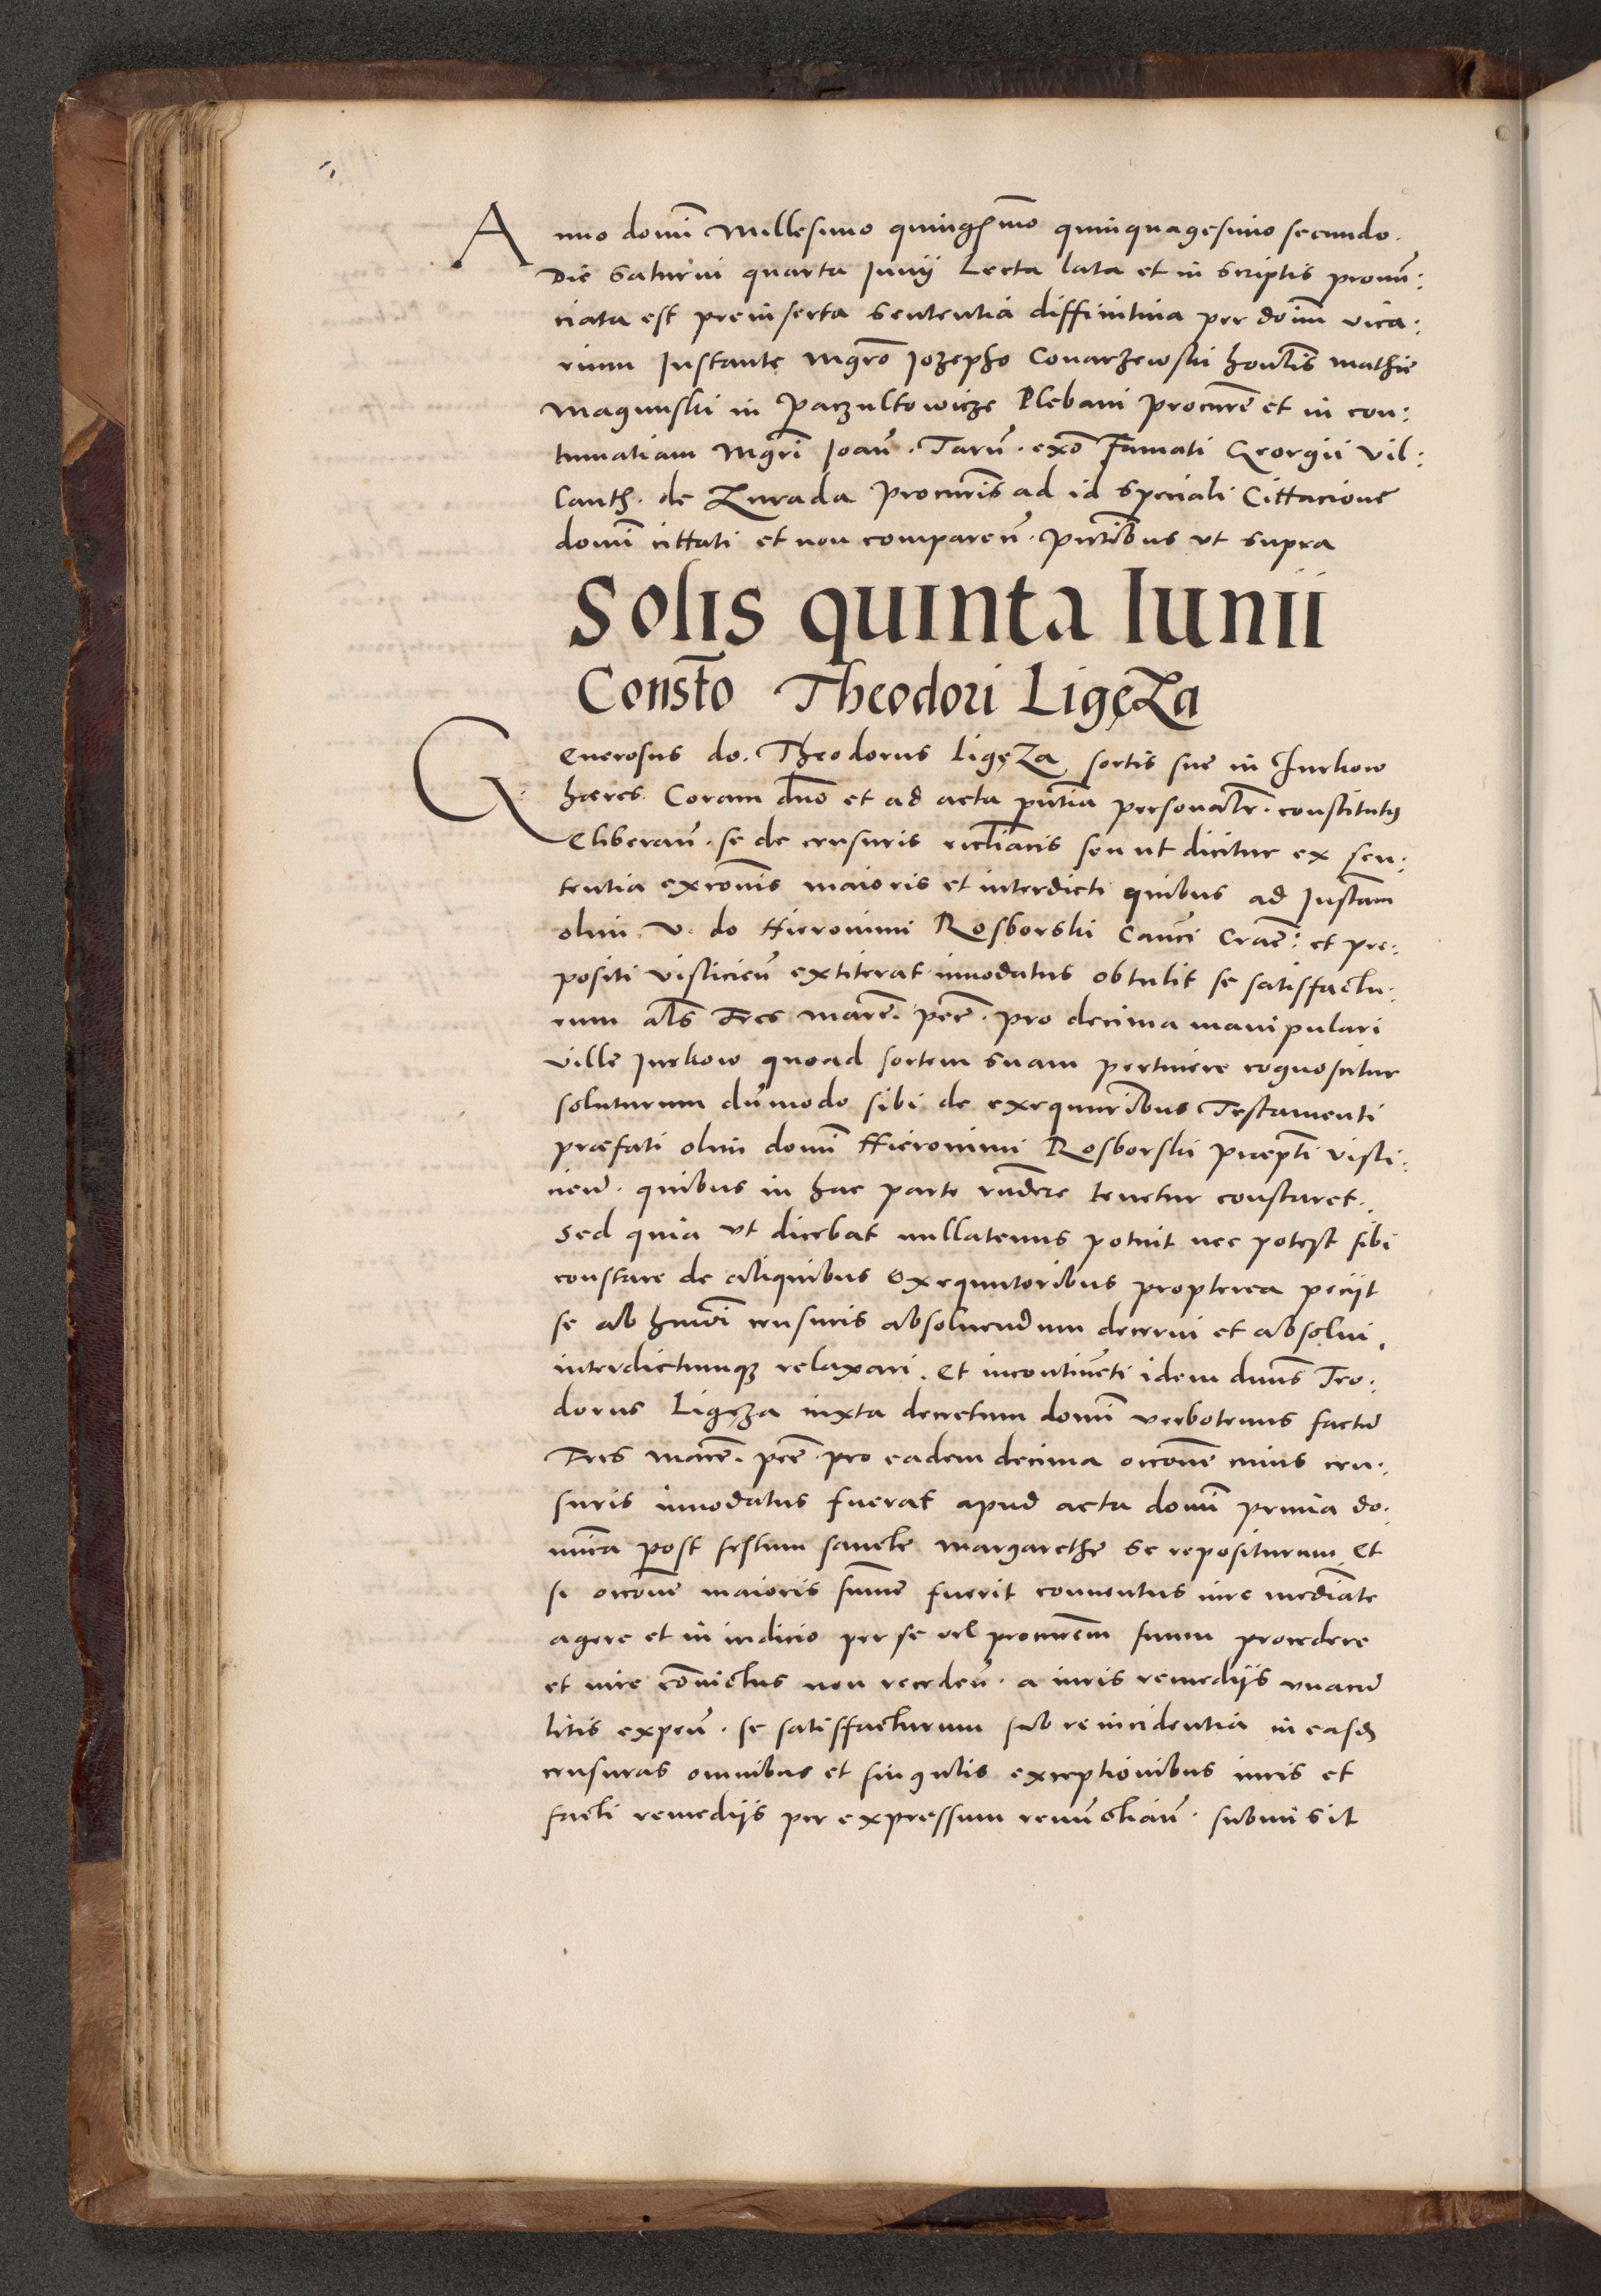 Anno domī Millesimo quingẽmo quinquagesimo secundo.
Die Saturni quarta Junij Lecta lata et in scriptis pronū:
ciata est preinserta sententia diffinitiua per dōnm vica:
rium Instante Mgrō Jozepho Conarzewski honlis Mathie
Magnuski in Paczultowicze Plebani procurẽ et in con:
tumatiam Mgrī Joañ. Tarñ. exō Famati Georgii Vil:
canth. de Zurada procuris ad id speciali Cittacione
domī cittati et non compareñ. pñtibus vt supra
Solis quinta Iunii
Consto Theodori Ligęza
Generosus do. Theodorus Ligęza sortis sue in Jurkow
hæres. Coram dño et ad acta pñtia personalr. constitutus
Cliberañ. se de censuris ecclīacis seu ut dicitur ex sen:
tentia excōnis maioris et interdicti quibus ad Instam
olim V. do Hieronimi Rosborski Canci Crać: et pre:
positi Visliciẽn extiterat innodatus obtulit se satisffactu:
rum als Tres marc. pec. pro decima manipulari
ville Jurkow quoad sortem suam pertinere cognoscitur
soluturum dūmodo sibi de exequutribus Testamenti
præfati olim domī Hieronimi Rosborski præpti Visli:
cieñ. quibus in hac parte rñdere tenetur constaret.
Sed quia vt dicebat nullatenus potuit nec potest sibi
constare de aliquibus exequutoribus propterea peciit
se ab hmōi censuris absoluendum decerni et absolui,
interdictumque relaxari. Et incontinēti idem dnus Teo:
dorus Ligęza iuxta decretum domī verbotenus factū
Tres marc. pec. pro eadem decima occōne cuius cen:
suris innodatus fuerat apud acta domī prima do:
mīca post festum sancte Margarethe se repositurum, Et
si occōne maioris summe fuerit conuentus iure mediāte
agere et in iudicio per se vel procurem suum procedere
et iure conuictus non recedeñ. a iuris remediis vnacū
litis expeñ. se satisffacturum sub reincidentia in easd
censuras omnibus et singulis exceptionibus iuris et
facti remediis per expressum renūctiañ. submisit